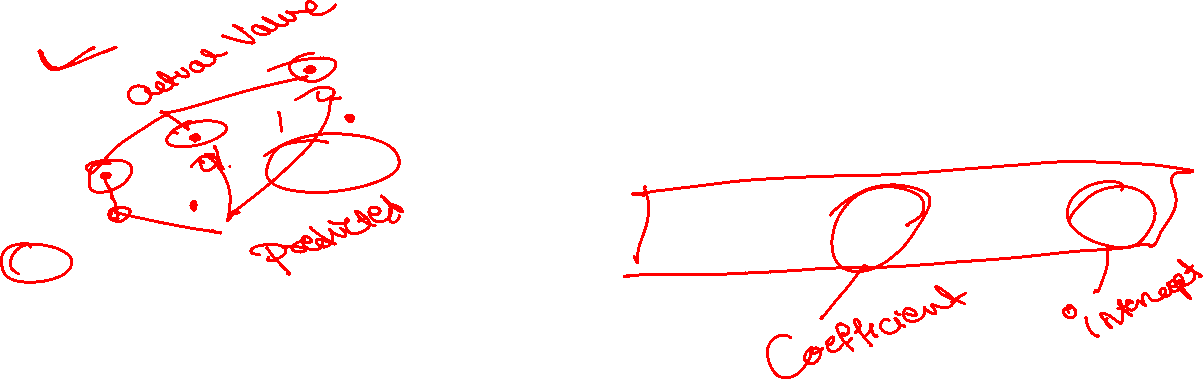 Actual Value
Predicted
Coefficient
intercept